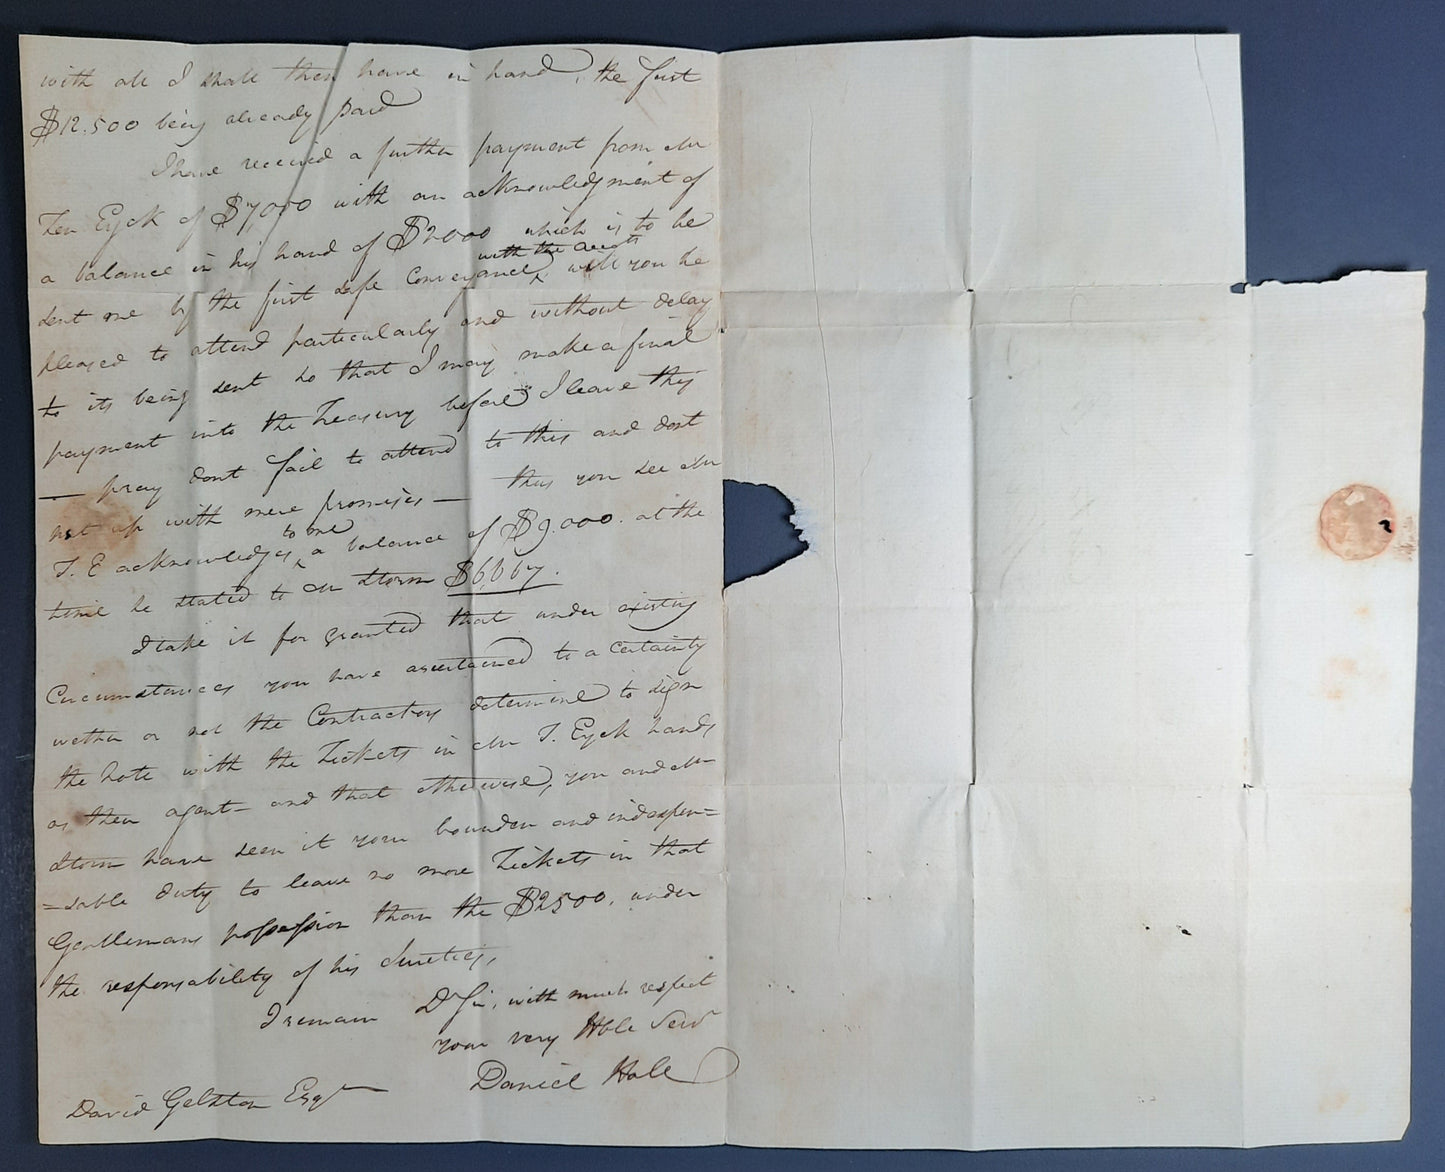 with all I shall then have in hand, the first
$12.500 being already paid
I have received a further payment from Mr
Ten Eyck of $7,000 with an acknowledgment of
a balance in his hand of $2000 which is to be
sent me by the first safe Conveyance with the acct will you be
pleased to attend particularly and without delay
to its being sent so that I may make a final
payment into the Treasury before I leave this
— pray dont fail to attend to this and dont
put up with mere promises — thus you see Mr
T. E acknowledges to me a balance of $9.000. at the
time he stated to Mr Storm $6,667.
I take it for granted that under existing
Circumstances you have ascertained to a certainty
wether or not the Contractors determine to sign
the note with the Tickets in Mr T. Eyck hands
as their agent – and that otherwise, you and Mr
Storm have seen it your bounden and indespen=
=sable duty to leave no more Tickets in that
Gentlemans possession than the $2500, under
the responsability of his Sureties,
I remain Dr Sir, with much respect
your very Hble Servt
Daniel Hale
David Gelston Esqr